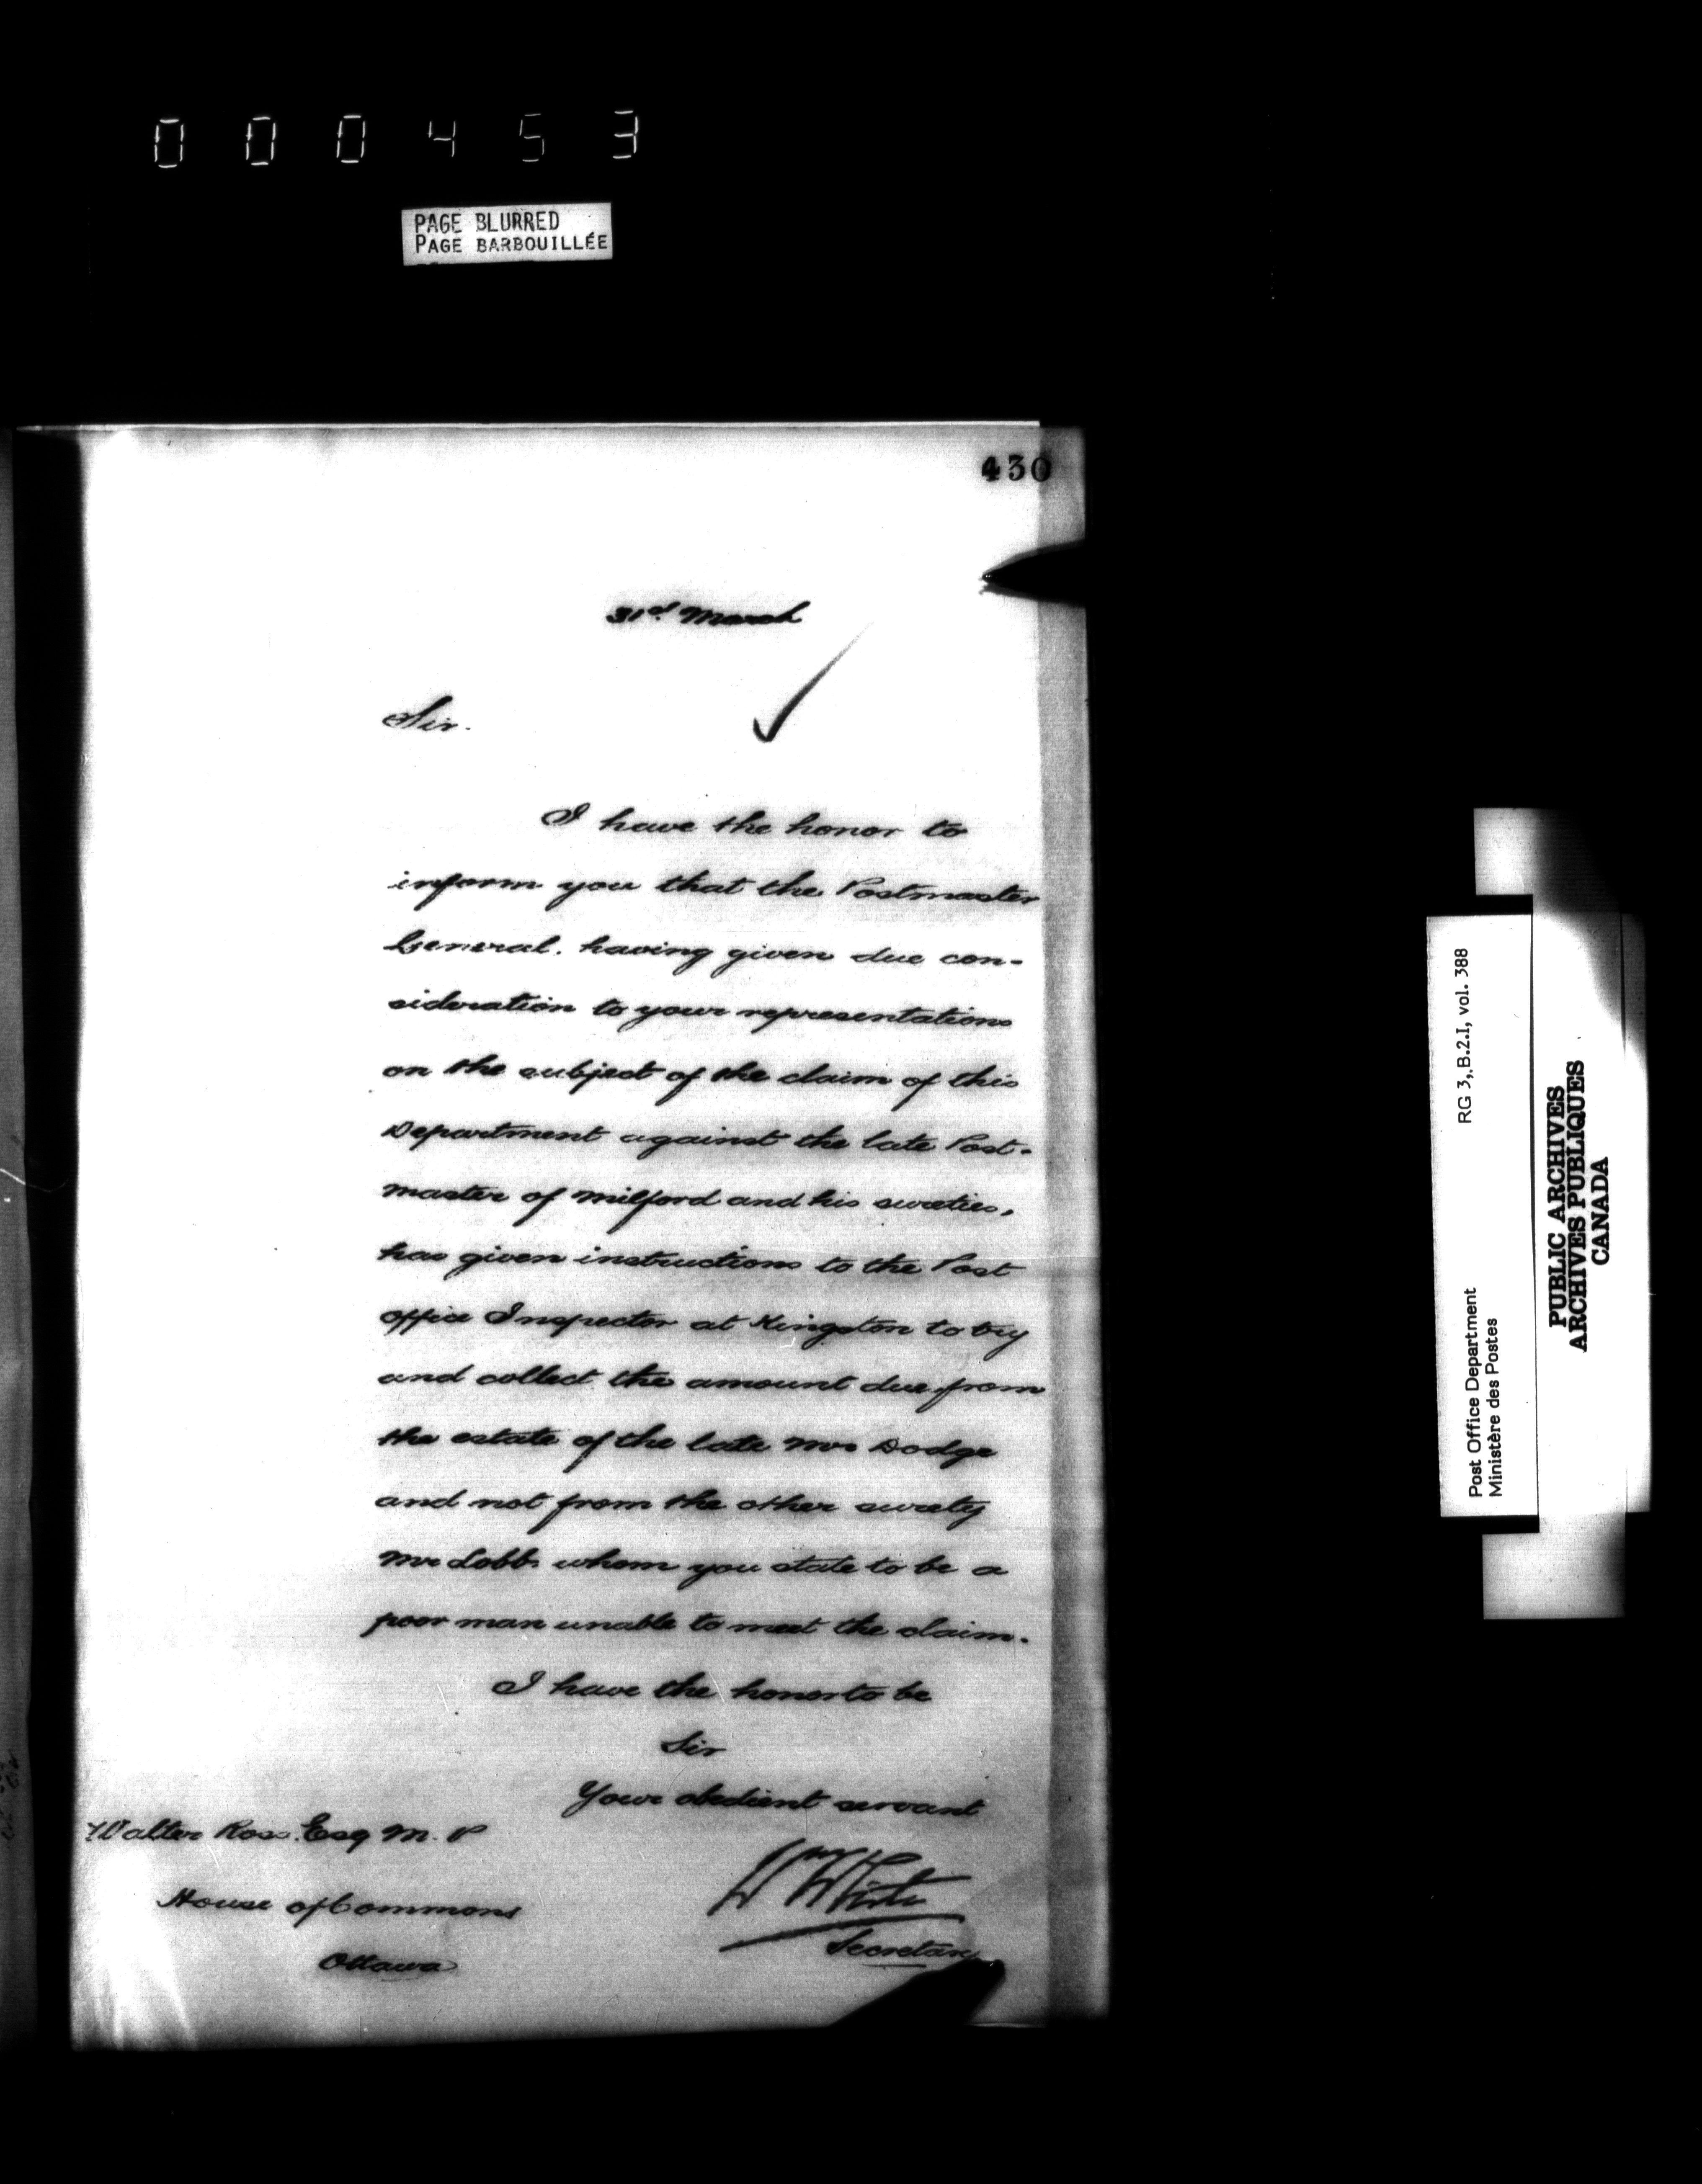 000453
PAGE BLURRED
PAGE BARBOUILLÉE
430
31st March
Sir.
I have the honor to
inform you that the Postmaster
General. having given due con-
sideration to your representations
on the subject of the claim of this
Department against the late Post-
master of Milford and his sureties,
has given instructions to the Post
office Inspector at Kingston to try
and collect the amount due from
the estate of the late Mr Dodge
and not from the other surety
Mr Lobb whom you state to be a
poor man unable to meet the claim.
I have the honor to be
Sir
Your obedient servant
Wm White
Secretary
Walter Ross. Esq M. P
House of Commons
Ottawa
Post Office Department
Ministère des Postes
RG 3, B.2.I, vol. 388
PUBLIC ARCHIVES
ARCHIVES PUBLIQUES
CANADA